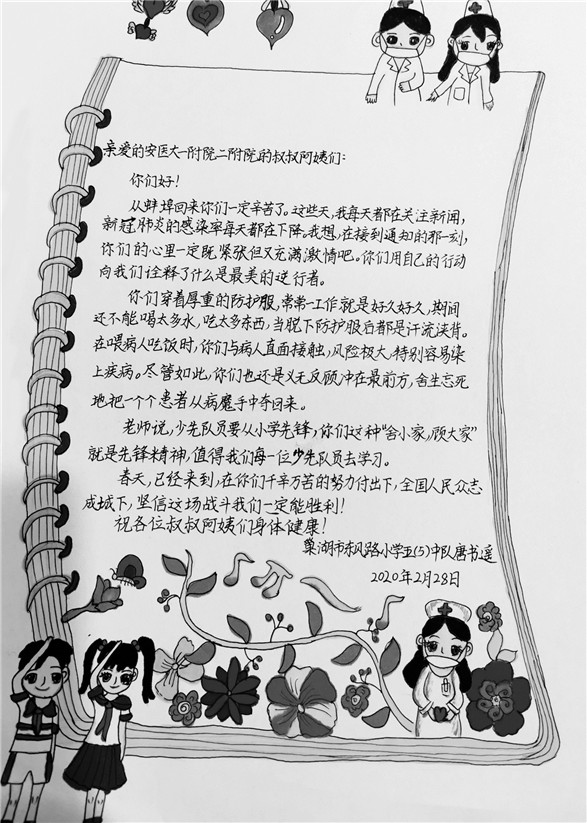 亲爱的安医大一附院二附院的叔叔阿姨们：
你们好！
从蚌埠回来你们一定辛苦了。这些天，我每天都在关注新闻，
新冠肺炎的感染率每天都在下降。我想，在接到通知的那一刻，
你们的心里一定既紧张但又充满激情吧。你们用自己的行动
向我们诠释了什么是最美的逆行者。
你们穿着厚重的防护服，常常一工作就是好久好久，期间
还不能喝太多水，吃太多东西，当脱下防护服后都是汗流浃背。
在喂病人吃饭时，你们与病人直面接触，风险极大，特别容易染
上疾病。尽管如此，你们也还是义无反顾冲在最前方，舍生忘死
地把一个个患者从病魔手中夺回来。
老师说，少先队员要从小学先锋，你们这种“舍小家，顾大家”
就是先锋精神，值得我们每一位少先队员去学习。
春天，已经来到，在你们千辛万苦的努力付出下，全国人民众志
成城下，坚信这场战斗我们一定能胜利！
祝各位叔叔阿姨们身体健康！
巢湖市东风路小学五(5)中队唐书遥
2020年2月28日